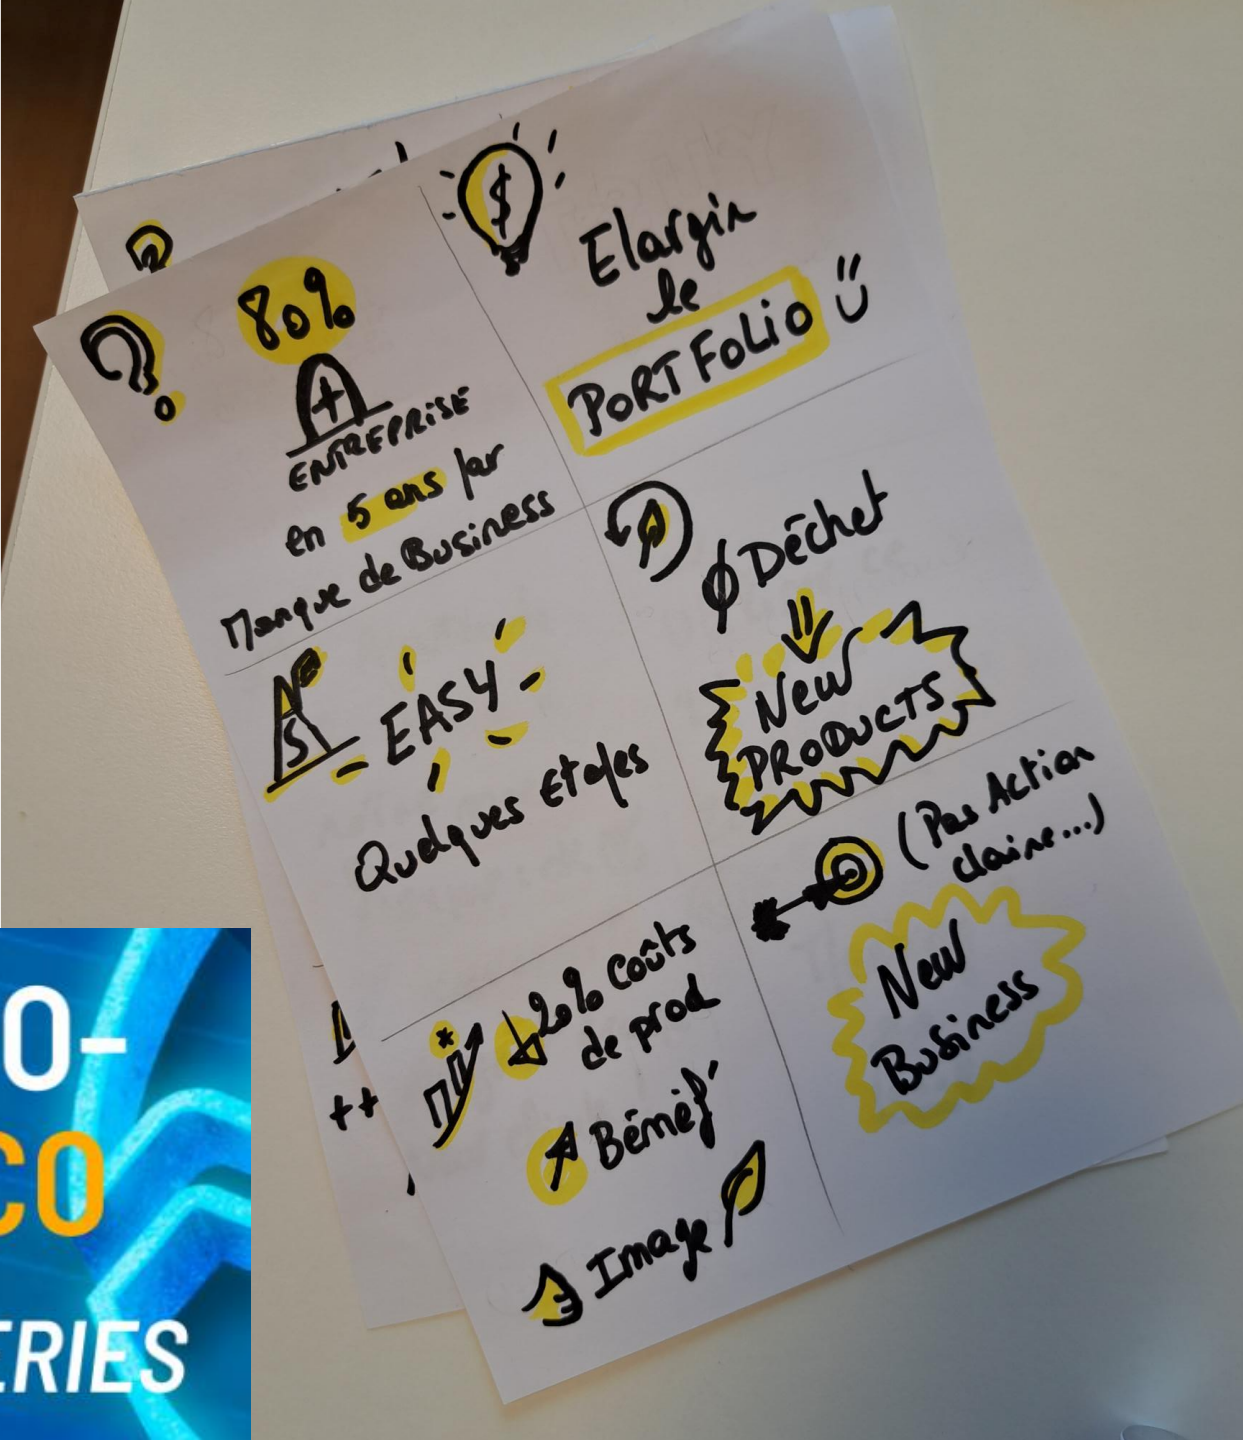 80%
+
ENTREPRISE
en 5 ans par
Manque de Business
$
Elargir
le
PORTFOLIO
EASY
Quelques Etapes
Ø Déchet
New
PRODUCTS
20% Coûts
de prod
Bénéf'
Image
(Pas Action
claire...)
New
Business
++
O-
CO
ERIES